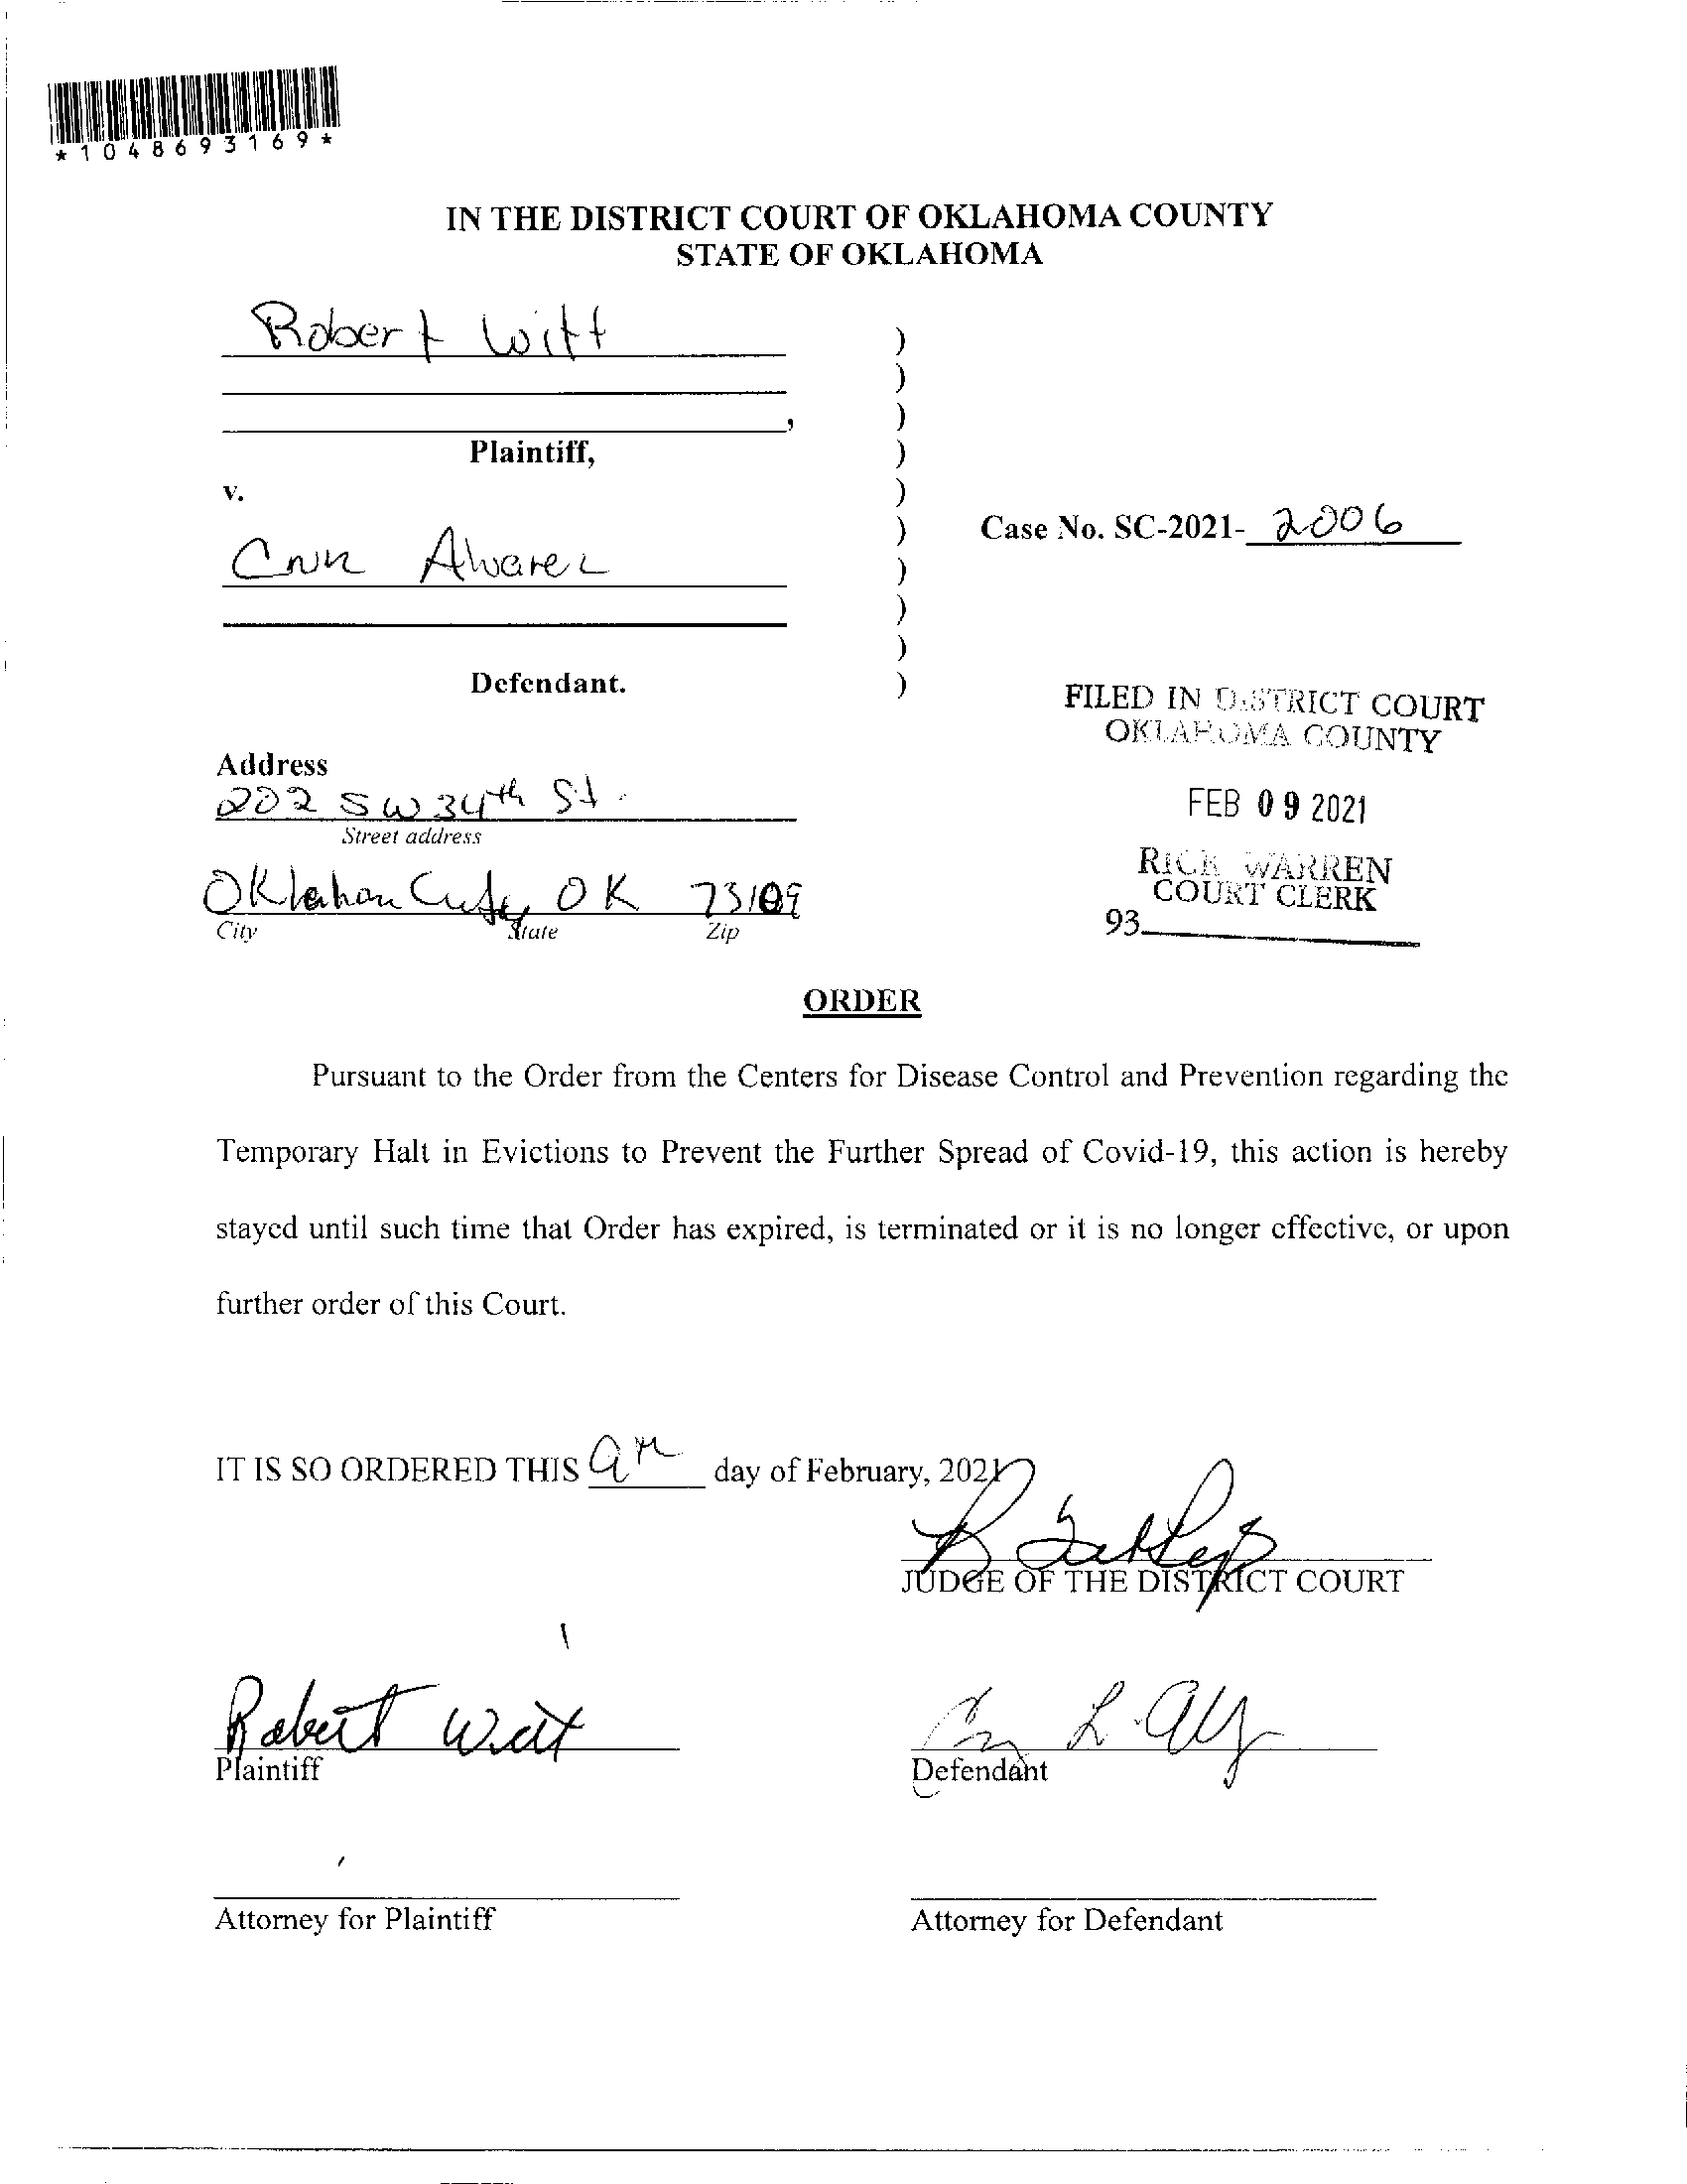 *1048693169*
IN THE DISTRICT COURT OF OKLAHOMA COUNTY
STATE OF OKLAHOMA
Robert Witt )
)
, )
Plaintiff, )
v. )
) Case No. SC-2021- 2006
Alvarez )
)
)
Defendant. )
FILED IN DISTRICT COURT
OKLAHOMA COUNTY
FEB 09 2021
RICK WARREN
COURT CLERK
93
Address
202 SW 34th St.
Street address
Oklahom City OK 73109
City State Zip
ORDER
Pursuant to the Order from the Centers for Disease Control and Prevention regarding the
Temporary Halt in Evictions to Prevent the Further Spread of Covid-19, this action is hereby
stayed until such time that Order has expired, is terminated or it is no longer effective, or upon
further order of this Court.
IT IS SO ORDERED THIS 9th day of February, 2021
JUDGE OF THE DISTRICT COURT
Robert Witt
Plaintiff Defendant
Attorney for Plaintiff Attorney for Defendant